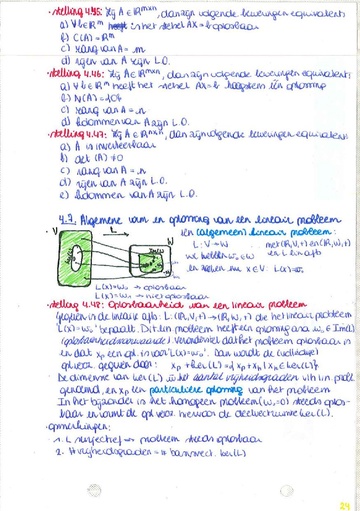 • stelling 4.45: Zij A ∈ ℝᵐˣⁿ, dan zijn volgende beweringen equivalent:
a) ∀ b ∈ ℝᵐ is het stelsel AX = b oplosbaar
b) C(A) = ℝᵐ
c) rang van A = m
d) rijen van A zijn L.O.
• stelling 4.46: Zij A ∈ ℝᵐˣⁿ, dan zijn volgende beweringen equivalent:
a) ∀ b ∈ ℝᵐ heeft het stelsel AX = b hoogstens één oplossing
b) N(A) = {0}
c) rang van A = n
d) kolommen van A zijn L.O.
• stelling 4.47: Zij A ∈ ℝⁿˣⁿ, dan zijn volgende beweringen equivalent:
a) A is inverteerbaar
b) det(A) ≠ 0
c) rang van A = n
d) rijen van A zijn L.O.
e) kolommen van A zijn L.O.
4.7. Algemene vorm en oplossing van een lineair probleem
Een (algemeen) lineair probleem:
V L W
L: V → W met (ℝ,V,+) en (ℝ,W,+)
we hebben w₀ ∈ W en L lin afb
en zoeken nu x ∈ V: L(x) = w₀
L(x) = w₀ → oplosbaar
L(x) = w₁ → niet oplosbaar
• stelling 4.48: Oplosbaarheid van een lineair probleem
Gegeven is de lineaire afb: L: (ℝ,V,+) → (ℝ,W,+) die het lineair probleem
L(x) = w₀ bepaalt. Dit lin probleem heeft een oplossing asa w₀ ∈ Im(L)
(oplosbaarheidsvoorwaarde). Veronderstel dat het probleem oplosbaar is
en dat xₚ een opl. is voor L(x) = w₀. Dan wordt de (volledige)
opl. verz. gegeven door: xₚ + ker(L) = {xₚ + xₕ | xₕ ∈ ker(L)}
De dimensie van ker(L) is het aantal vrijheidsgraden v/h lin probl.
genoemd, en xₚ een particuliere oplossing van het probleem
In het bijzonder is het homogeen probleem (w₀ = 0) steeds oplos-
baar en vormt de opl. verz. hiervoor de deelvectorruimte ker(L).
• opmerkingen:
1. L surjectief → probleem steeds oplosbaar
2. # vrijheidsgraden = # basisvect. ker(L)
29